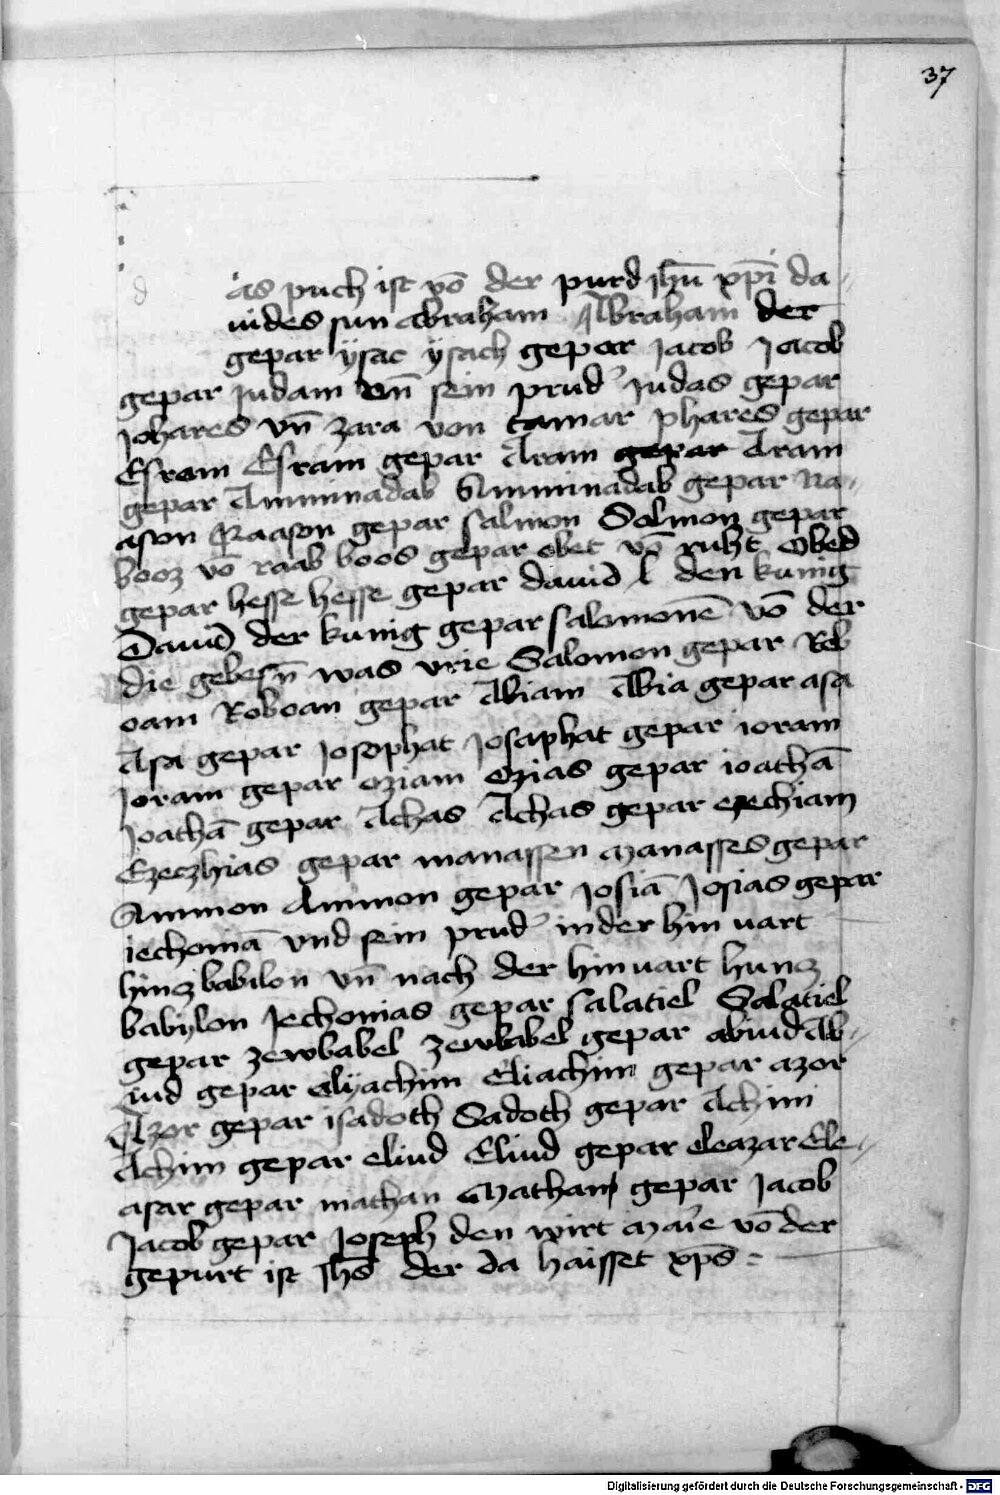 37
d as puch ist vō der purd ihū xp̄i da-
uides sun abraham Abraham der
gepar ysac ysach gepar Jacob Jacob
gepar Judam vn̄ sein prud' Judas gepar
phares vn̄ zara von tamar phares gepar
Esrom Esram gepar Aram gepar Aram
gepar Amminadab Amminadab gepar Na-
ason Naason gepar salmon Solmon gepar
booz vō raab boos gepar obet vō ruht Obed
gepar hesse hesse gepar dauid den kunig
Dauid der kunig gepar salomonē vō der
die gebesn̄ was vrie Salomon gepar Rob
oam Roboan gepar Abiam Abia gepar asa
Asa gepar Josophat Josaphat gepar ioram
Joram gepar oziam Ozias gepar ioathā
Joathā gepar Achas Achas gepar ezechiam
Ezeczhias gepar manassen Manasses gepar
Ammon Ammon gepar Josiā Josias gepar
iechoniā vnd sein prud' in der hin uart
hincz babilon vn̄ nach der hinuart huncz
babylon Jechonias gepar salatiel Salatiel
gepar zewbabel zewbabel gepar abiud Ab-
iud gepar elyachim Eliachim gepar azor
Azor gepar isadoth Sadoth gepar Achim
Achim gepar eliud Eliud gepar eleazar Ele-
asar gepar mathan Mathan gepar Jacob
Jacob gepar Joseph den wirt Mar̄ie vō der
gepurt ist Jhs̄ der da haisset xps̄
Digitalisierung gefördert durch die Deutsche Forschungsgemeinschaft - DFG